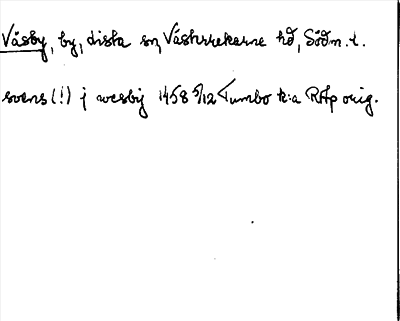 Väsby, by, Lista sn, Västerrekarne hd, Södm. l.
svens (!) j wesby 1458 5/12 Tumbo k:a RAp orig.